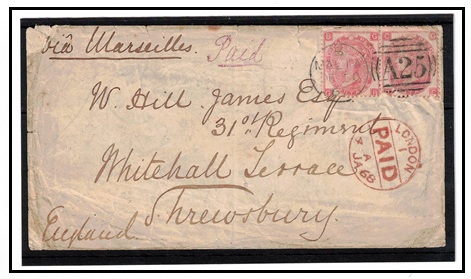 viâ Marseilles. Paid
A25
W. Hill James Esq
31st Regiment
Whitehall Terrace
Shrewsbury.
England
LONDON
1
PAID
A
JA 68